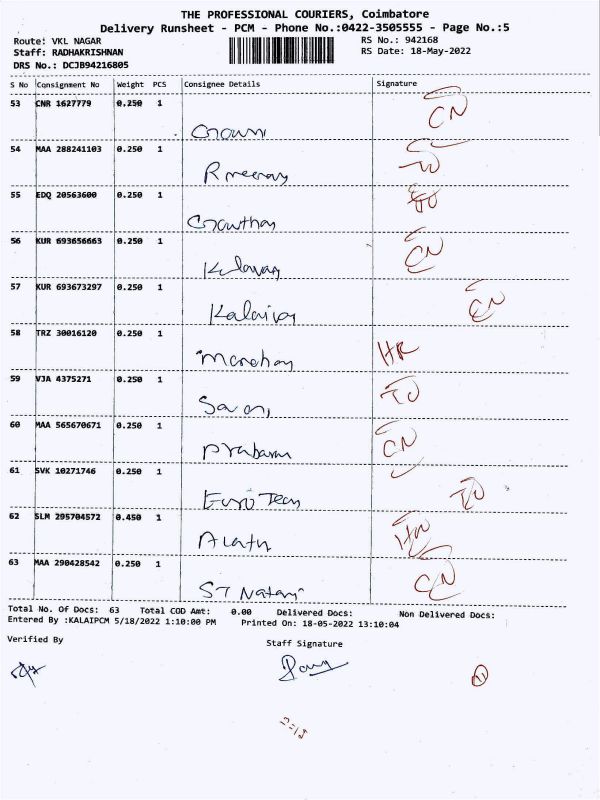 THE PROFESSIONAL COURIERS, Coimbatore
Delivery Runsheet - PCM - Phone No.:0422-3505555 - Page No.:5
Route: VKL NAGAR RS No.: 942168
Staff: RADHAKRISHNAN RS Date: 18-May-2022
DRS No.: DCJB94216805
S No Consignment No Weight PCS Consignee Details Signature
53 CNR 1627779 0.250 1
CN
54 MAA 288241103 0.250 1
TO
55 EDQ 20563600 0.250 1
Gowtham
TO
56 KUR 693656663 0.250 1
CN
57 KUR 693673297 0.250 1
CN
58 TRZ 30016120 0.250 1
HR
Manohar
59 VJA 4375271 0.250 1
TO
60 MAA 565670671 0.250 1
CN
61 SVK 10271746 0.250 1
Euro Team TO
62 SLM 295704572 0.450 1
63 MAA 290428542 0.250 1
CN
Total No. Of Docs: 63 Total COD Amt: 0.00 Delivered Docs: Non Delivered Docs:
Entered By :KALAIPCM 5/18/2022 1:10:00 PM Printed On: 18-05-2022 13:10:04
Verified By Staff Signature
11